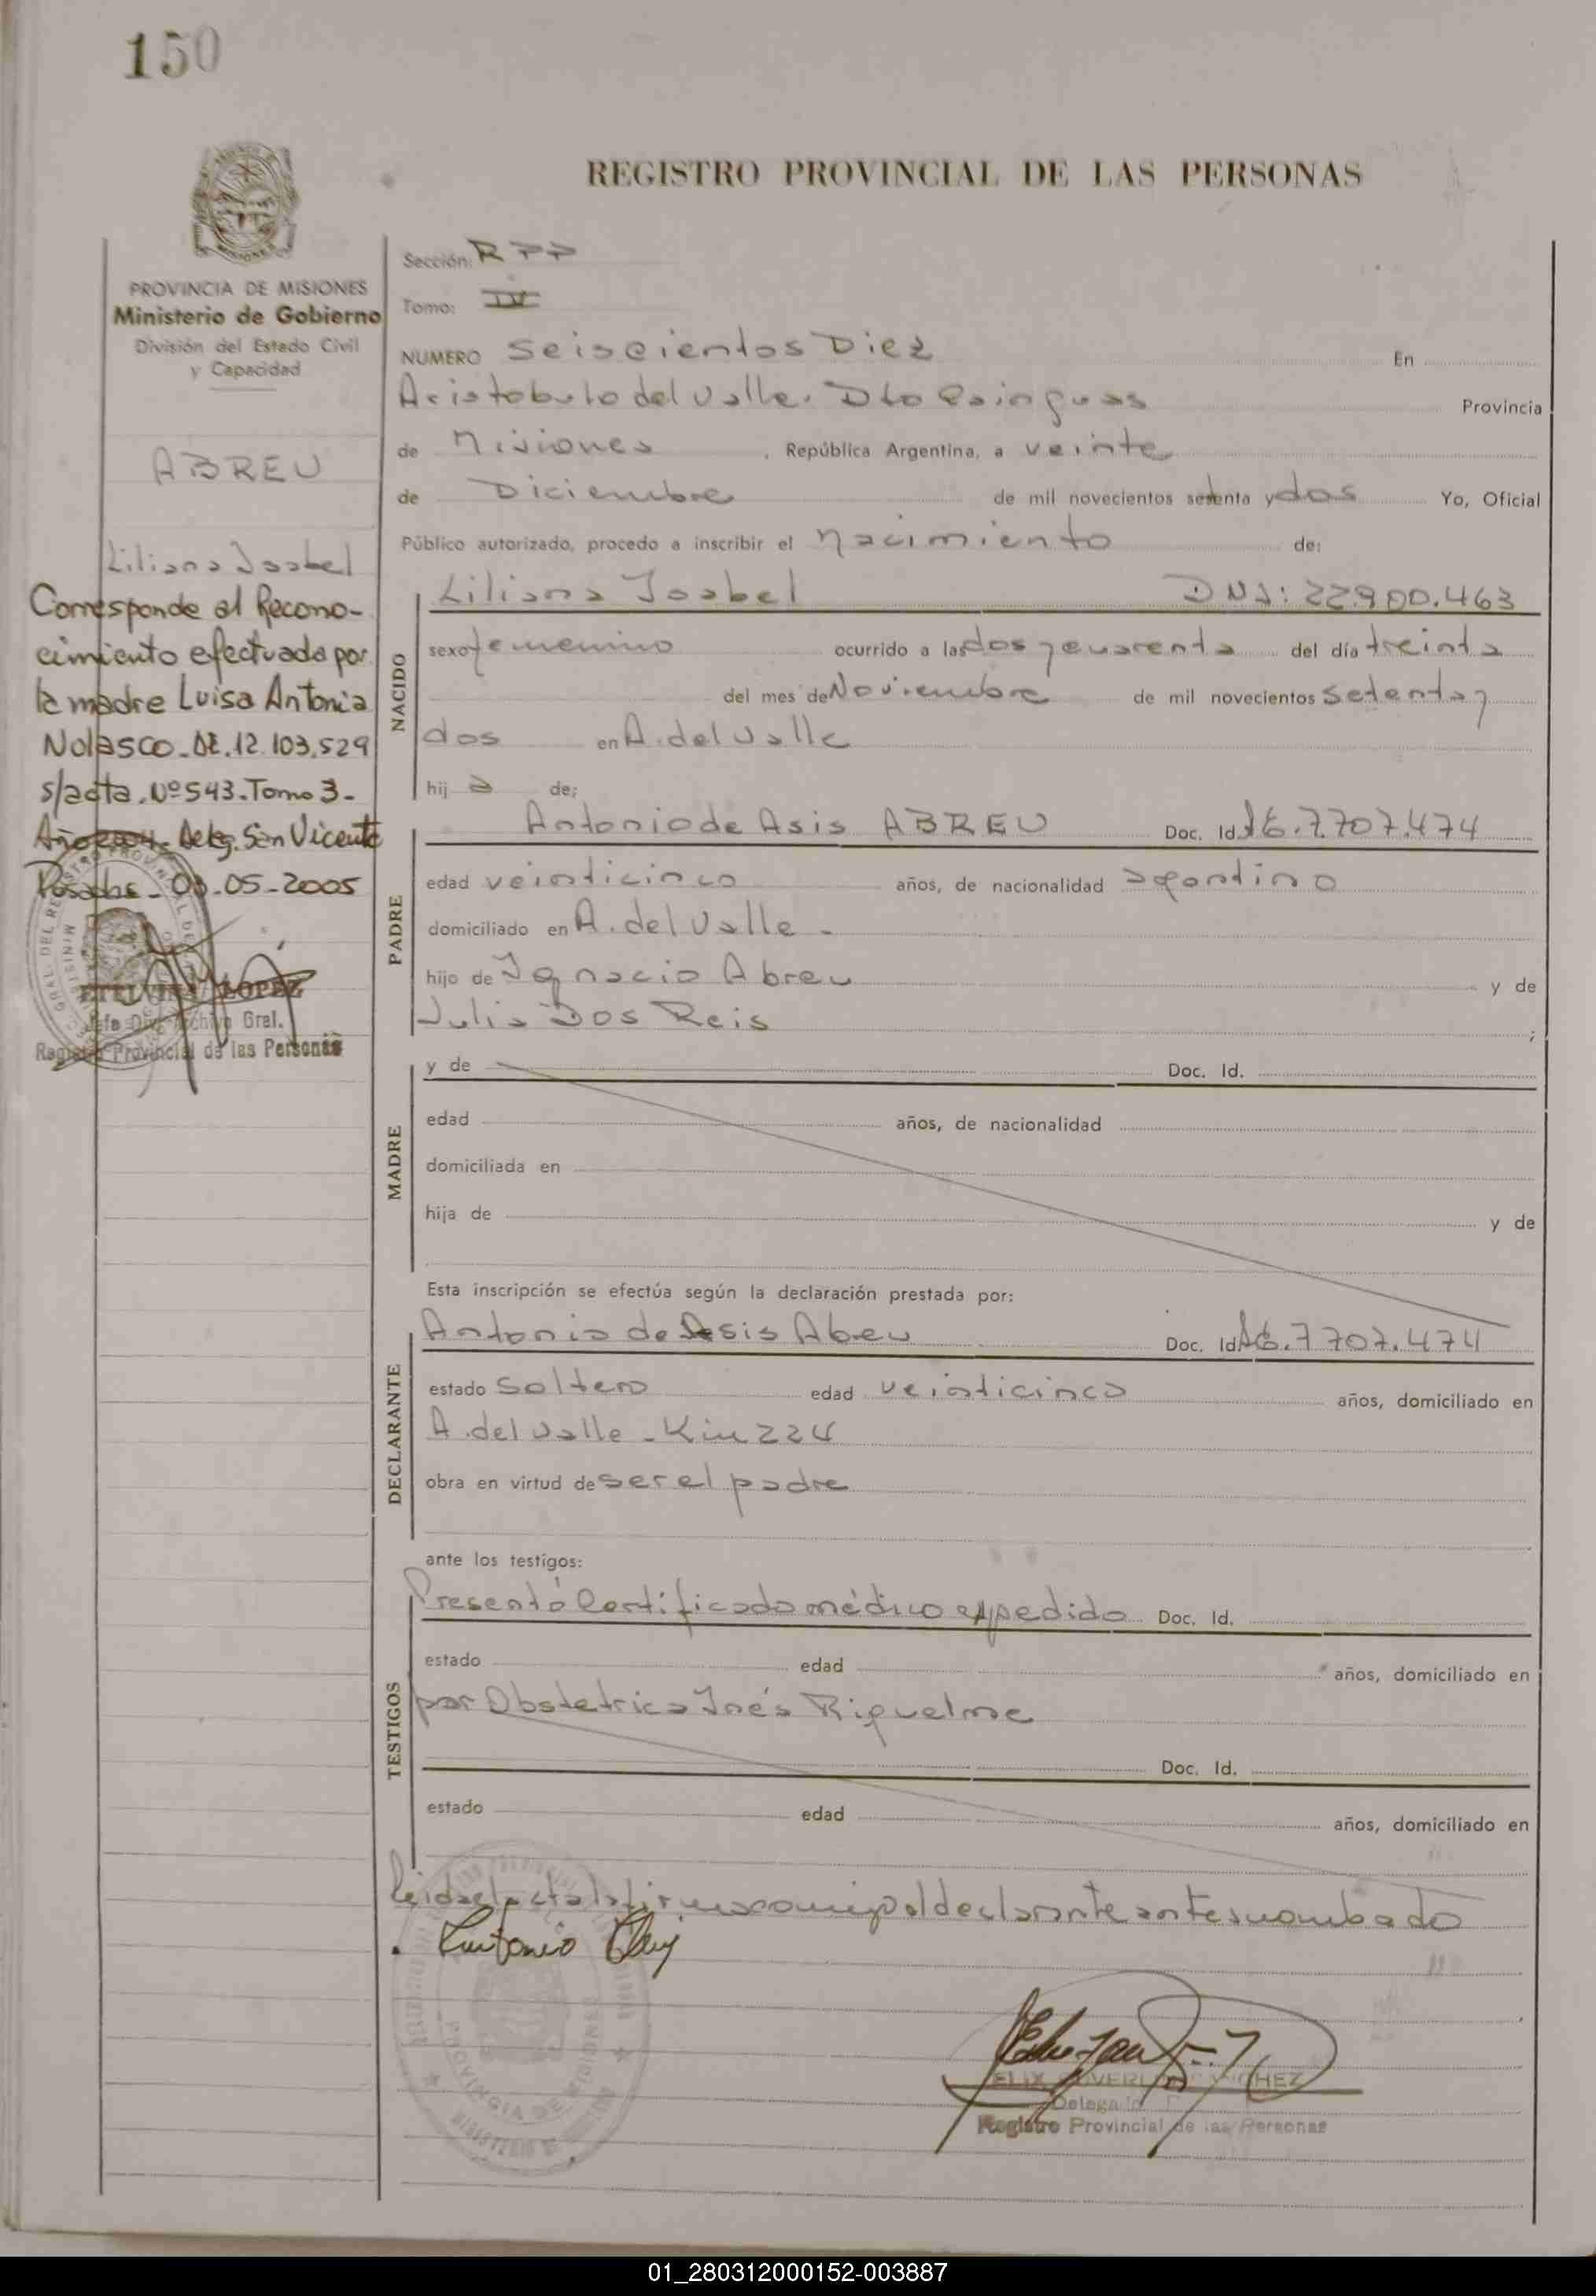 150
REGISTRO PROVINCIAL DE LAS PERSONAS
PROVINCIA DE MISIONES
Ministerio de Gobierno
División del Estado Civil
y Capacidad
ABREU
Liliana Isabel
Corresponde al Recono-
cimiento efectuado por
la madre Luisa Antonia
Nolasco - DI. 12.103.529
s/acta. Nº 543. Tomo 3-
Año 2004. Deleg. San Vicente
Posadas - 03-05-2005
ETELVINA LOPEZ
Jefe Div. Archivo Gral.
Registro Provincial de las Personas
Sección: RPP
Tomo: IV
NUMERO Seiscientos Diez En
Aristobulo del Valle. Dto Cainguas Provincia
de Misiones, República Argentina, a veinte
de Diciembre de mil novecientos setenta y dos Yo, Oficial
Público autorizado, procedo a inscribir el nacimiento de:
NACIDO
Liliana Isabel DNI: 22.900.463
sexo femenino ocurrido a las dos y cuarenta del día treinta
del mes de Noviembre de mil novecientos setenta y
dos en A. del Valle
hij a de:
PADRE
Antonio de Asis ABREU Doc. Id. 7.707.474
edad veinticinco años, de nacionalidad argentino
domiciliado en A. del Valle -
hijo de Ignacio Abreu y de
Julia Dos Reis ;
MADRE
y de Doc. Id.
edad años, de nacionalidad
domiciliada en
hija de y de
Esta inscripción se efectúa según la declaración prestada por:
DECLARANTE
Antonio de Asis Abreu Doc. Id. 7.707.474
estado Soltero edad veinticinco años, domiciliado en
A. del Valle - Km 224
obra en virtud de ser el padre
ante los testigos:
TESTIGOS
Presentó Certificado médico expedido Doc. Id.
estado edad años, domiciliado en
por Obstetrica Inés Riquelme
Doc. Id.
estado edad años, domiciliado en
Leida el acta la firma conmigo el declarante antes nombrado
Antonio
PROVINCIA DE MISIONES
FELIX SANCHEZ
Delegado
Registro Provincial de las Personas
01_280312000152-003887